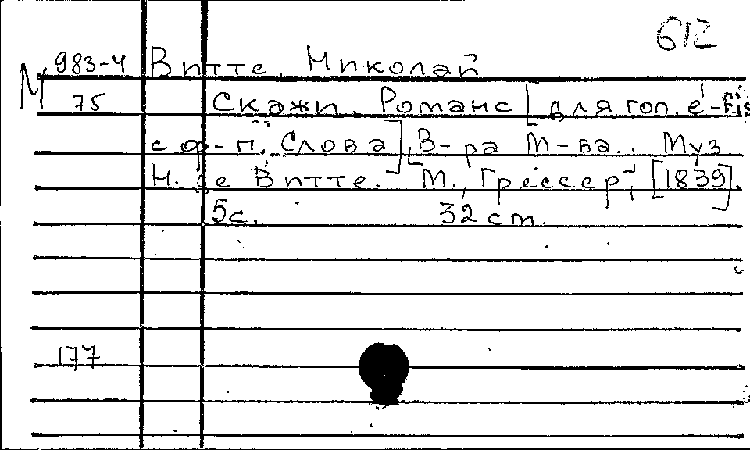 612
М 983-4 Витте, Николай
75 Скажи. Романс [для гол. с ф-п. Слова], В-ра М-ва. Муз.
Н. де Витте. М., Грессер, [1839].
5с. 32 cm.
177